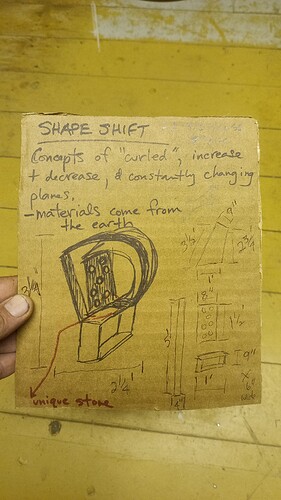 SHAPE SHIFT
Concepts of "curled", increase
+ decrease, & constantly changing
planes.
- materials come from
the earth
2 1/4'
unique stone
1'
18"
1 1/2'
9"
1'
X